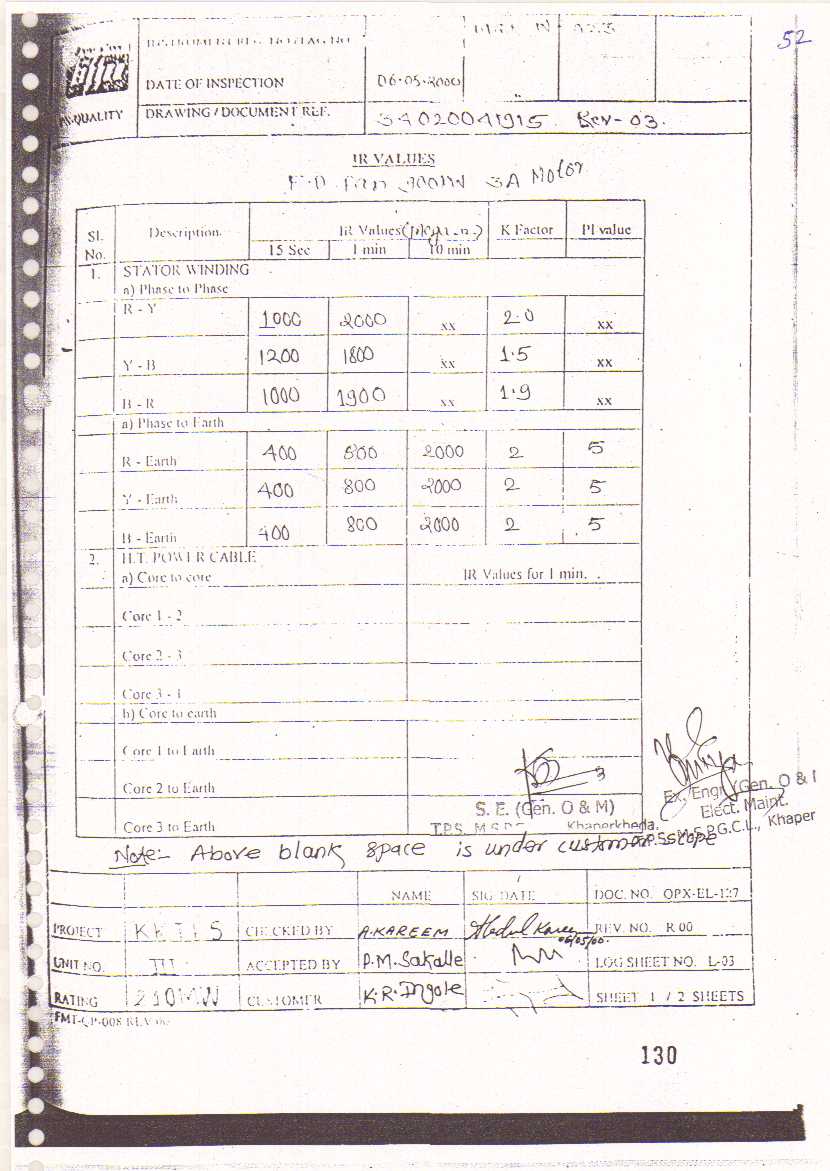 52
QUALITY
DATE OF INSPECTION 06-05-2000
DRAWING / DOCUMENT REF. 34020041915 Rev-03.
IR VALUES
F.D. Fan 900KW 3A Motor
Sl. No. Description IR Values K Factor PI value
15 Sec 1 min 10 min
1. STATOR WINDING
a) Phase to Phase
R - Y 1000 2000 xx 2.0 xx
Y - B 1200 1800 xx 1.5 xx
B - R 1000 1900 xx 1.9 xx
a) Phase to Earth
R - Earth 400 800 2000 2 5
Y - Earth 400 800 2000 2 5
B - Earth 400 800 2000 2 5
2. H.T. POWER CABLE
a) Core to core IR Values for 1 min.
Core 1 - 2
Core 2 - 3
Core 3 - 1
b) Core to earth
Core 1 to Earth
Core 2 to Earth
Core 3 to Earth
S. E. (Gen. O & M)
T.P.S. Khaperkheda.
Ex. Engr. (Gen. O & I
Elect. Maint.
T.P.S. M.S.P.G.C.L., Khaper
Note:- Above blank space is under customer scope
NAME SIG. DATE DOC. NO. OPX-EL-127
PROJECT CHECKED BY A.KAREEM Abdul Kareem 06/05/00. REV. NO. R 00
UNIT NO. III ACCEPTED BY P.M. Sakalle LOG SHEET NO. L-03
RATING 210MW CUSTOMER K.R. Ingole SHEET 1 / 2 SHEETS
FMT-QP-008 REV 00
130